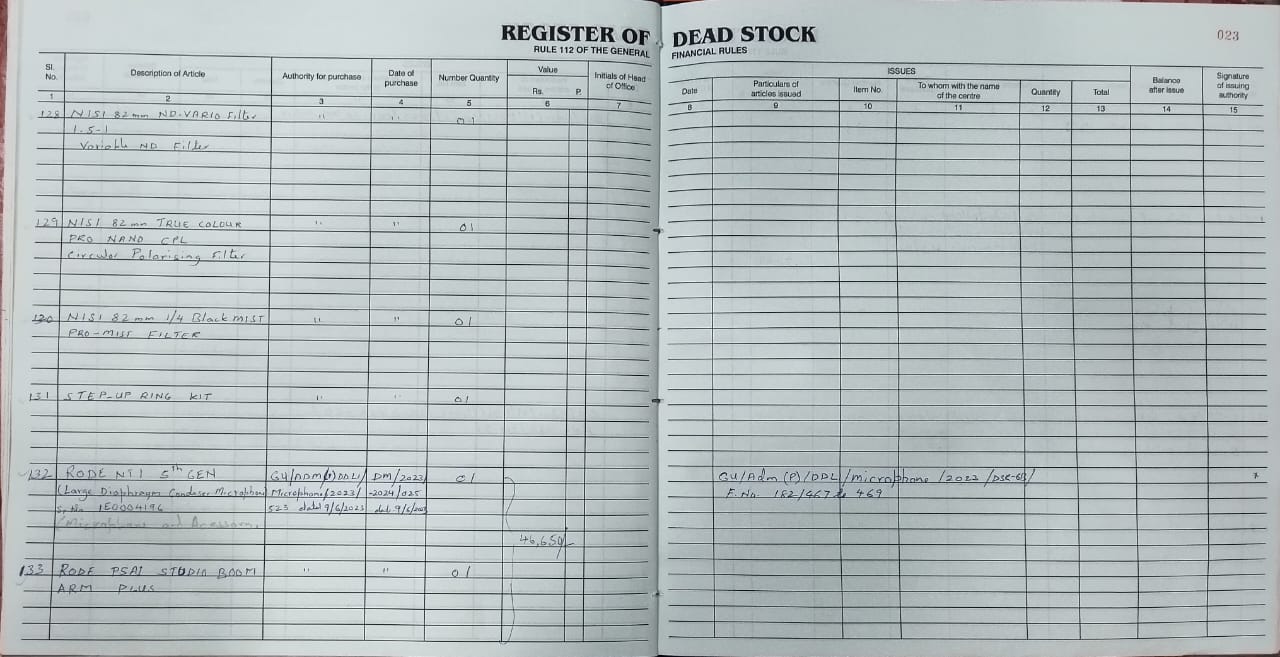 REGISTER OF DEAD STOCK
RULE 112 OF THE GENERAL FINANCIAL RULES
023
Sl. No. Description of Article Authority for purchase Date of purchase Number Quantity Value Rs. P. Initials of Head of Office
ISSUES
Date Particulars of articles issued Item No. To whom with the name of the centre Quantity Total Balance after issue Signature of issuing authority
1 2 3 4 5 6 7 8 9 10 11 12 13 14 15
128 NISI 82 mm ND-VARIO Filter " " 01
1.5-1
Variable ND Filter
129 NISI 82 mm TRUE COLOUR " " 01
PRO NANO CPL
Circular Polarising Filter
130 NISI 82 mm 1/4 Black MIST " " 01
PRO-MIST FILTER
131 STEP-UP RING KIT " " 01
132 RODE NT1 5th GEN GU/ADM(P)DDL/ DM/2023/ 01 GU/Adm (P)/DDL/microphone/2023/
(Large Diaphragm Condenser Microphone Microphone/2023/ -2024/025 F. No. 182/467 & 469
Sr. No 523 dated 9/6/2023
(Microphone and
46,650/-
133 RODE PSA1 STUDIO BOOM " " 01
ARM PLUS